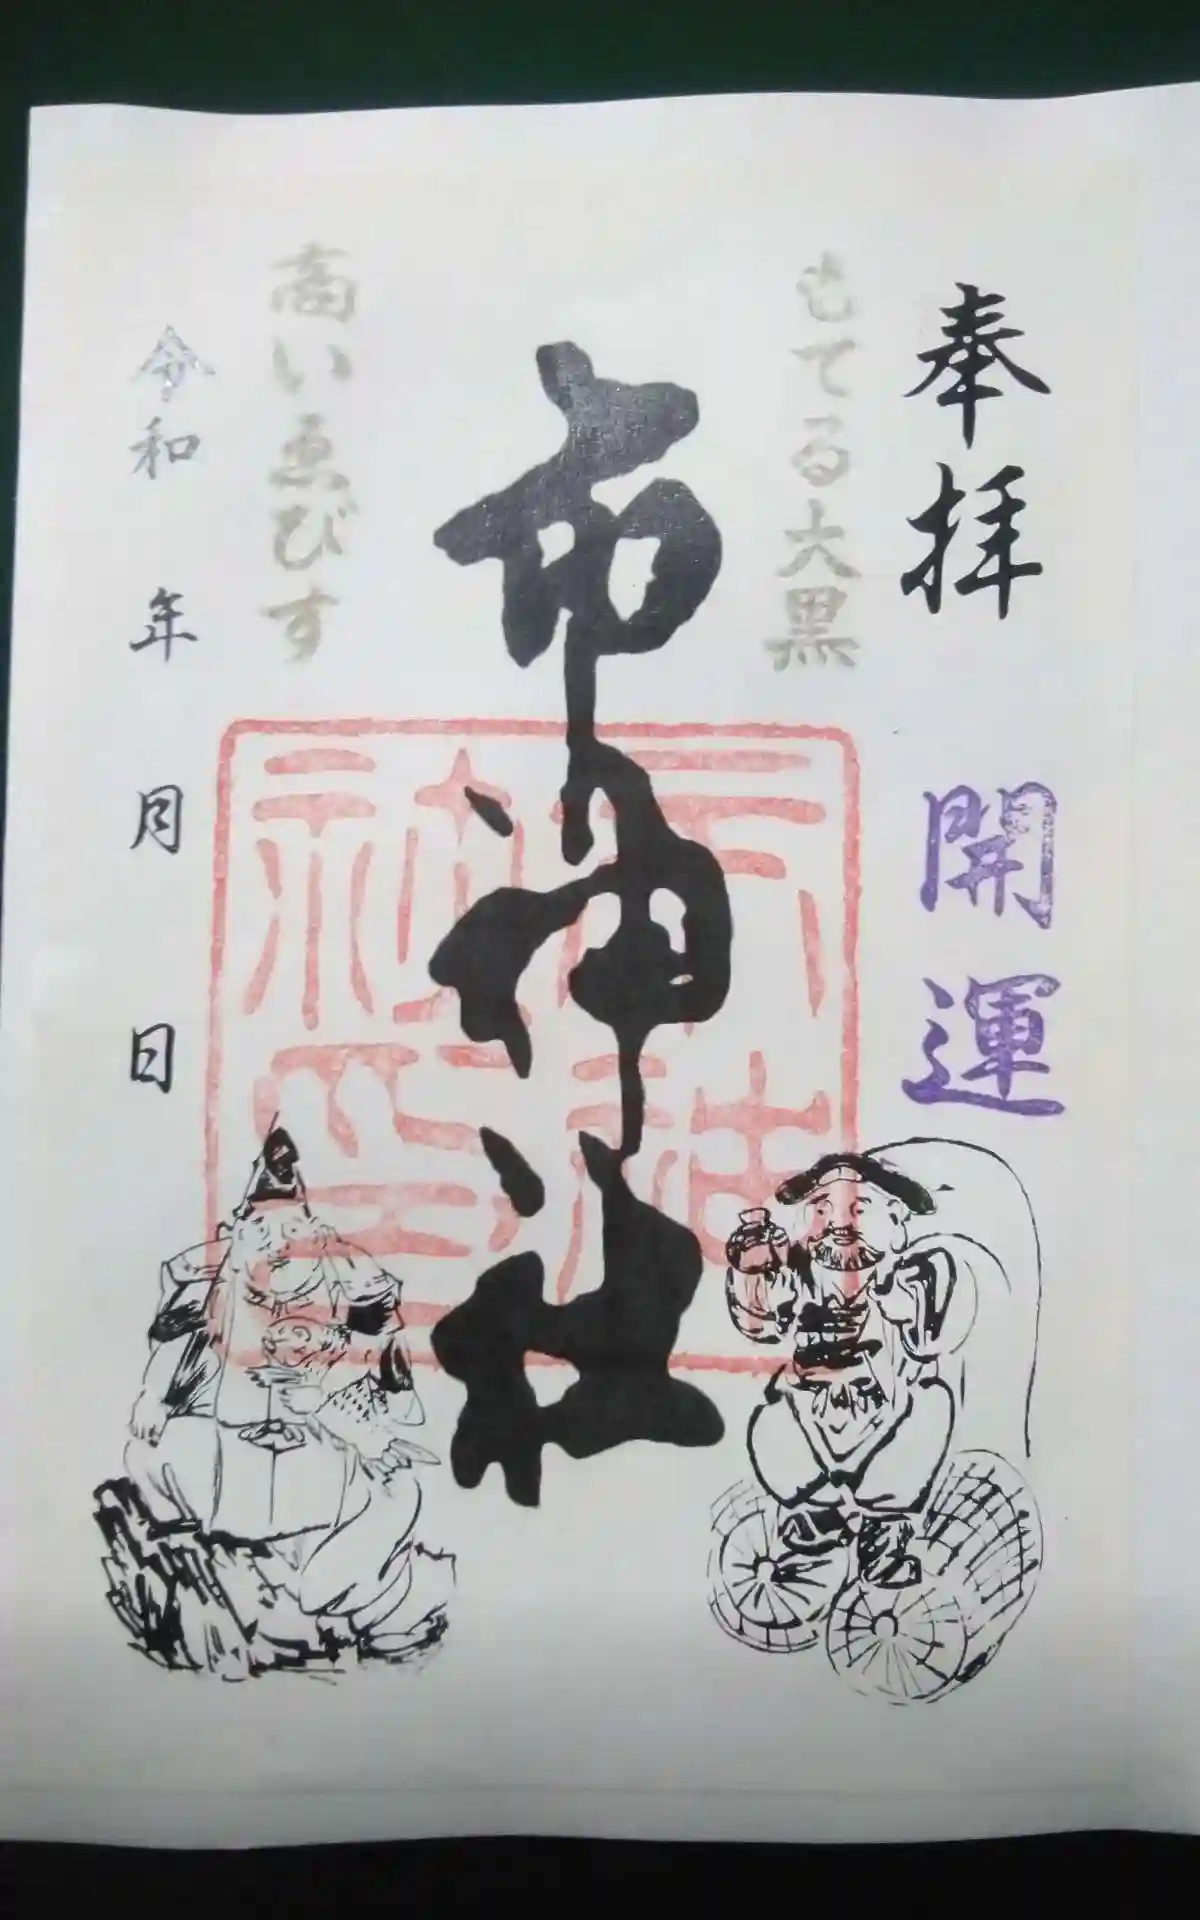 奉拝
開運
もてる大黒
市神社
商いゑびす
令和 年 月 日